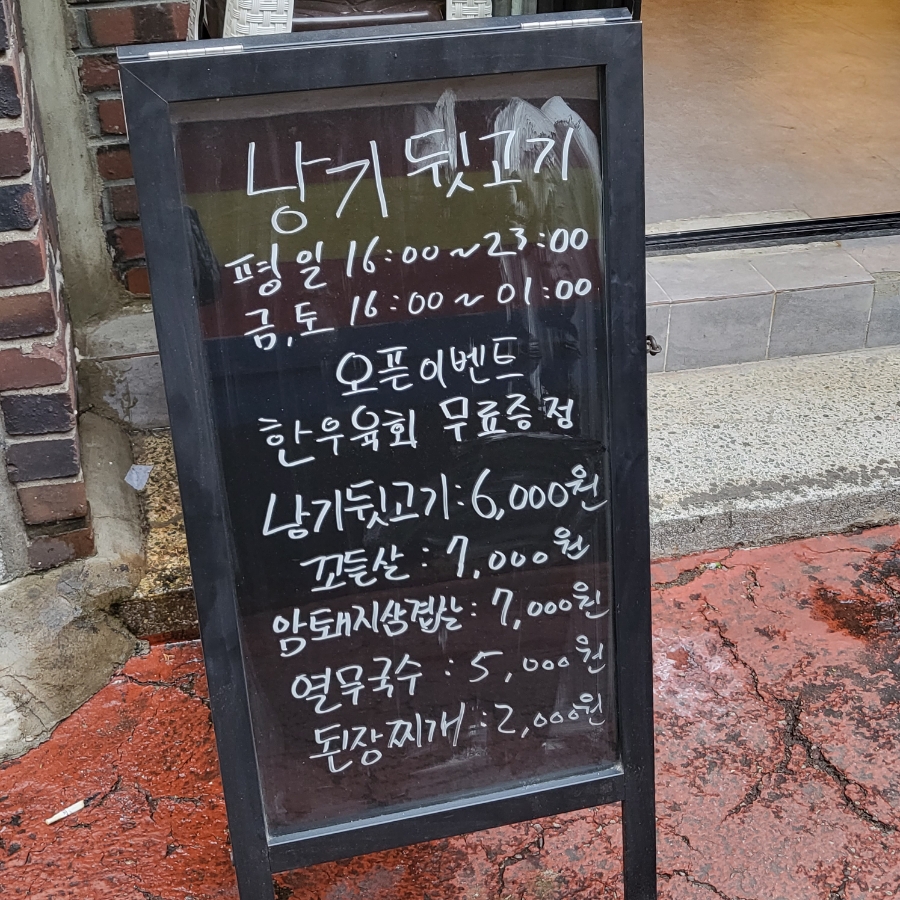 낭기뒷고기
평일 16:00~23:00
금,토 16:00~01:00
오픈이벤트
한우육회 무료증정
낭기뒷고기:6,000원
꼬들살:7,000원
암돼지삼겹살:7,000원
열무국수:5,000원
된장찌개:2,000원